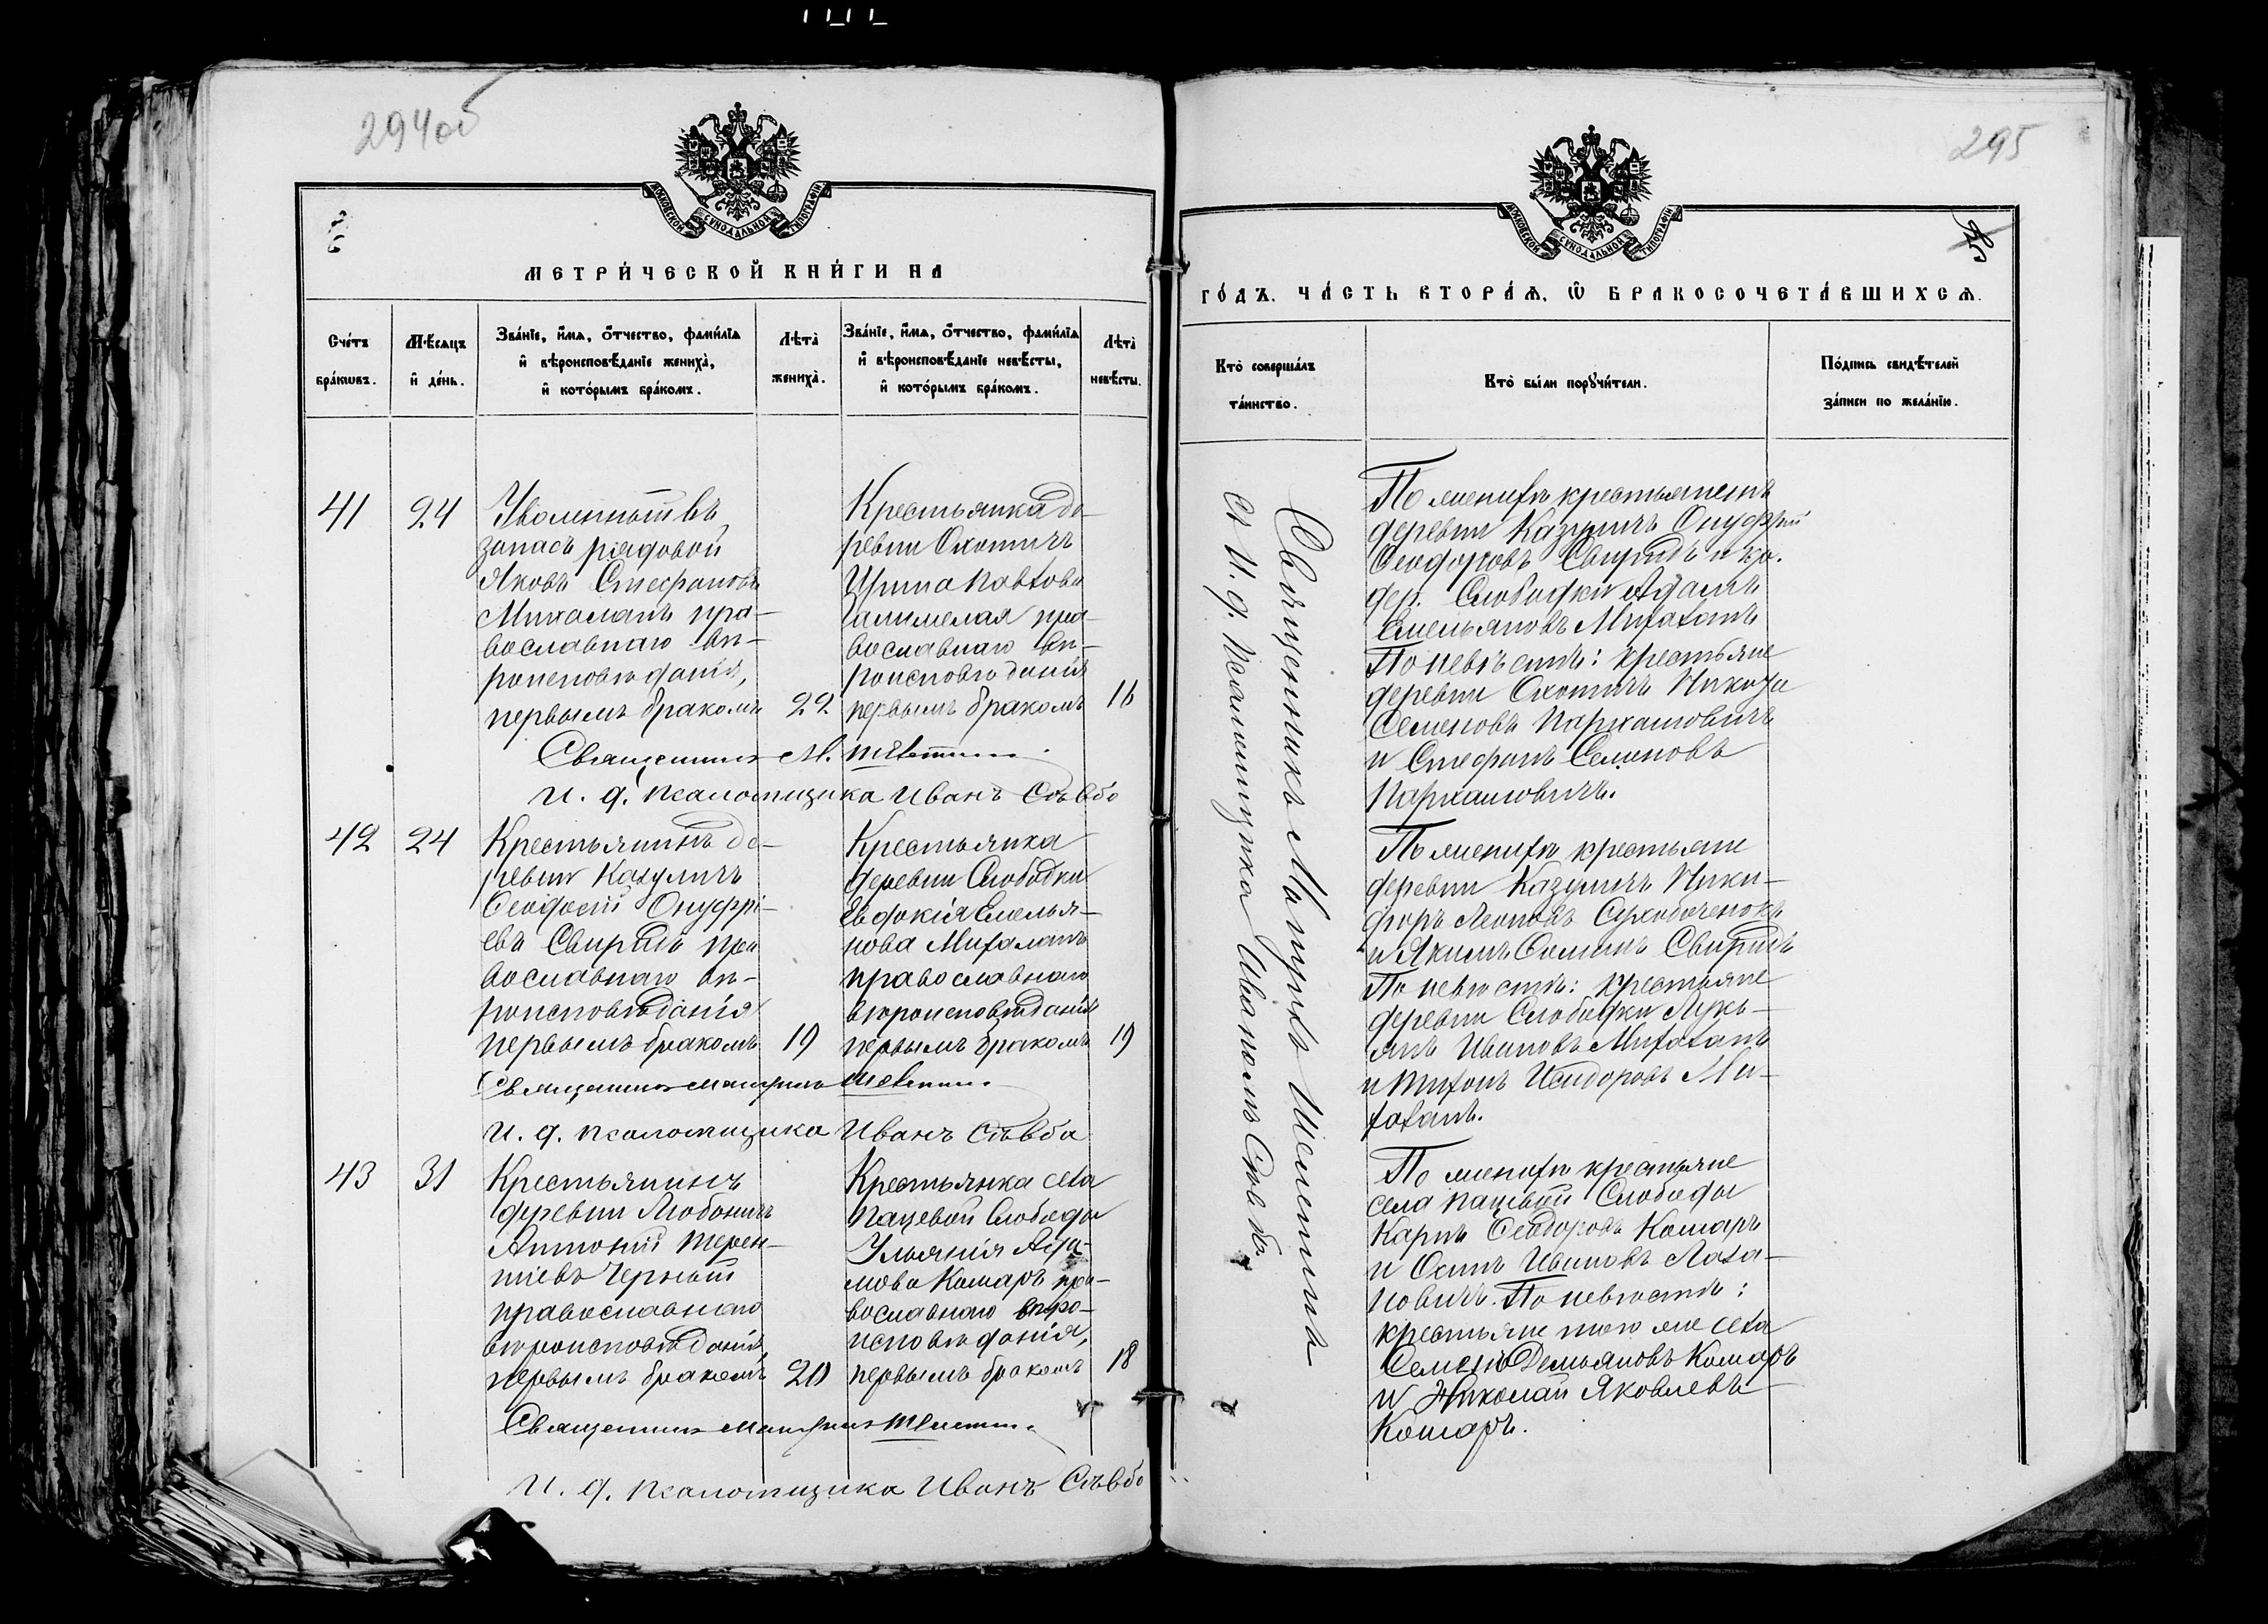 294об
МОСКОВСКОЙ СУНОДАЛЬНОЙ ТИПОГРАФІИ
МЕТРИ́ЧЕСКОЙ КНИ́ГИ НА
Сче́тъ бра́кѡвъ.
Мѣ́сѧцъ и҆ де́нь.
Зва́нїе, и҆́мѧ, ѻ҆́тчество, фами́лїѧ
и҆ вѣроисповѣ́данїе жениха̀,
и҆ кото́рымъ бра́комъ.
Лѣта̀ жениха̀.
Зва́нїе, и҆́мѧ, ѻ҆́тчество, фами́лїѧ
и҆ вѣроисповѣ́данїе невѣ́сты,
и҆ кото́рымъ бра́комъ.
Лѣта̀ невѣ́сты.
41
24
Уволенный въ
запасъ рядовой
Яковъ Стефановъ
Михаланъ пра-
вославнаго вѣ-
роисповѣданія,
первымъ бракомъ
22
Крестьянка де-
ревни Охотичъ
Ирина Павлова
православнаго вѣ-
роисповѣданія
первымъ бракомъ
16
Священникъ М.
И. д. псаломщика Иванъ
42
24
Крестьянинъ де-
ревни Казуличъ
Феодосій Онуфрі-
евъ Свиридъ пра
вославнаго вѣ-
роисповѣданія
первымъ бракомъ
19
Крестьянка
деревни Слободки
Евдокія Емелья-
нова Михаланъ
православнаго
вѣроисповѣданія
первымъ бракомъ
19
Священникъ
И. д. псаломщика Иванъ
43
31
Крестьянинъ
деревни Любоничъ
Антоній Терен-
тіевъ Черный
православнаго
вѣроисповѣданія,
первымъ бракомъ
20
Крестьянка села
Пацевой Слободы
Ульянія Ада-
мова Комаръ пра-
вославнаго вѣро-
исповѣданія,
первымъ бракомъ
18
Священникъ
И. д. псаломщика Иванъ
295
МОСКОВСКОЙ СУНОДАЛЬНОЙ ТИПОГРАФІИ
ГО́ДЪ. ЧА́СТЬ ВТОРА́Ѧ, Ѽ БРАКОСОЧЕТА́ВШИХСѦ.
Кто̀ соверша́лъ
та́инство.
Кто̀ бы́ли порꙋчи́тели.
По́дпись свидѣ́телей
за́писи по жела́нїю.
Священникъ
съ И. д. псаломщика Иваномъ
По женихѣ крестьянинъ
деревни Казуличъ Онуфрій
Феодоровъ Свиридъ и кр.
дер. Слободки Адамъ
Емельяновъ Михаланъ
По невѣстѣ: крестьяне
деревни Охотичъ Никита
Семеновъ Пархамовичъ
и Стефанъ Семеновъ
Пархамовичъ.
По женихѣ крестьяне
деревни Казуличъ Ники-
форъ Леоновъ
и Якимъ Фоминъ Свиридъ
По невѣстѣ: крестьяне
деревни Слободки Лукь-
янъ Ивановъ Михаланъ
и Тихонъ Исидоровъ Ми-
халанъ.
По женихѣ крестьяне
села Пацевой Слободы
Карпъ Феодоровъ Комаръ
и Осипъ Ивановъ Лаза-
новичъ. По невѣстѣ:
крестьяне того же села
Семенъ Демьяновъ Комаръ
и Николай Яковлевъ
Комаръ.